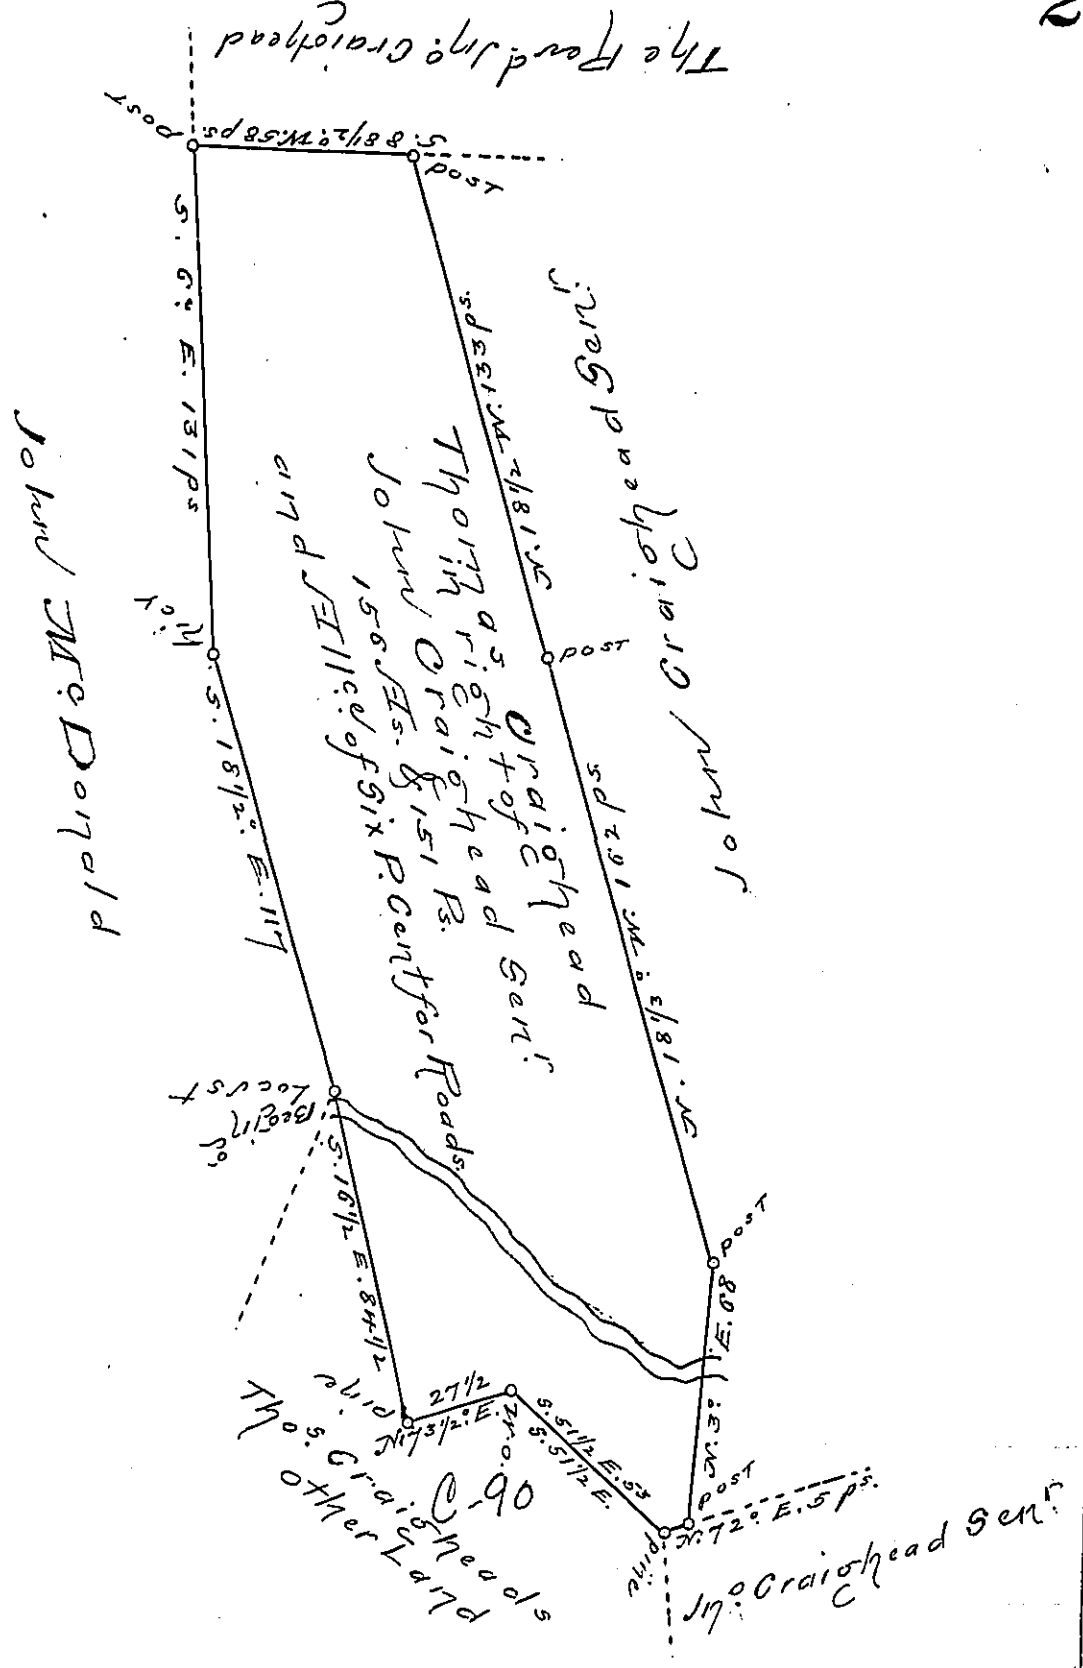 The Revd. Jnọ Craighead
2
post
S. 88 1/2° W. 58 ps.
post
S. 6° E. 131 ps
N. 18 1/2 W. 133 ps.
John Craighead Senr.
post
Thomas Craighead
in right of
John Craighead Senr.
156 As. & 151 Ps.
and Allce. of Six P. Cent for Roads.
John McDonald
Hicy.
S. 18 1/2° E. 117
N. 18 1/3° W. 162 ps
Locust
Begining
S. 16 1/2 E. 84 1/2
post
N. 3° E. 68
pine
N. 73 1/2° E.
27 1/2
W.O.
S. 51 1/2 E. 53
S. 51 1/2 E.
post
N. 72° E. 5 ps.
pine
Thos. Craigheads
other Land
C-90
Jno. Craighead Senr.